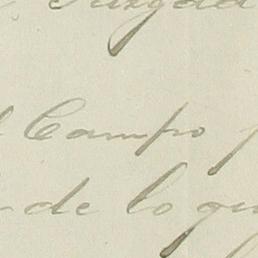 Juzgad
Campo
de lo qu